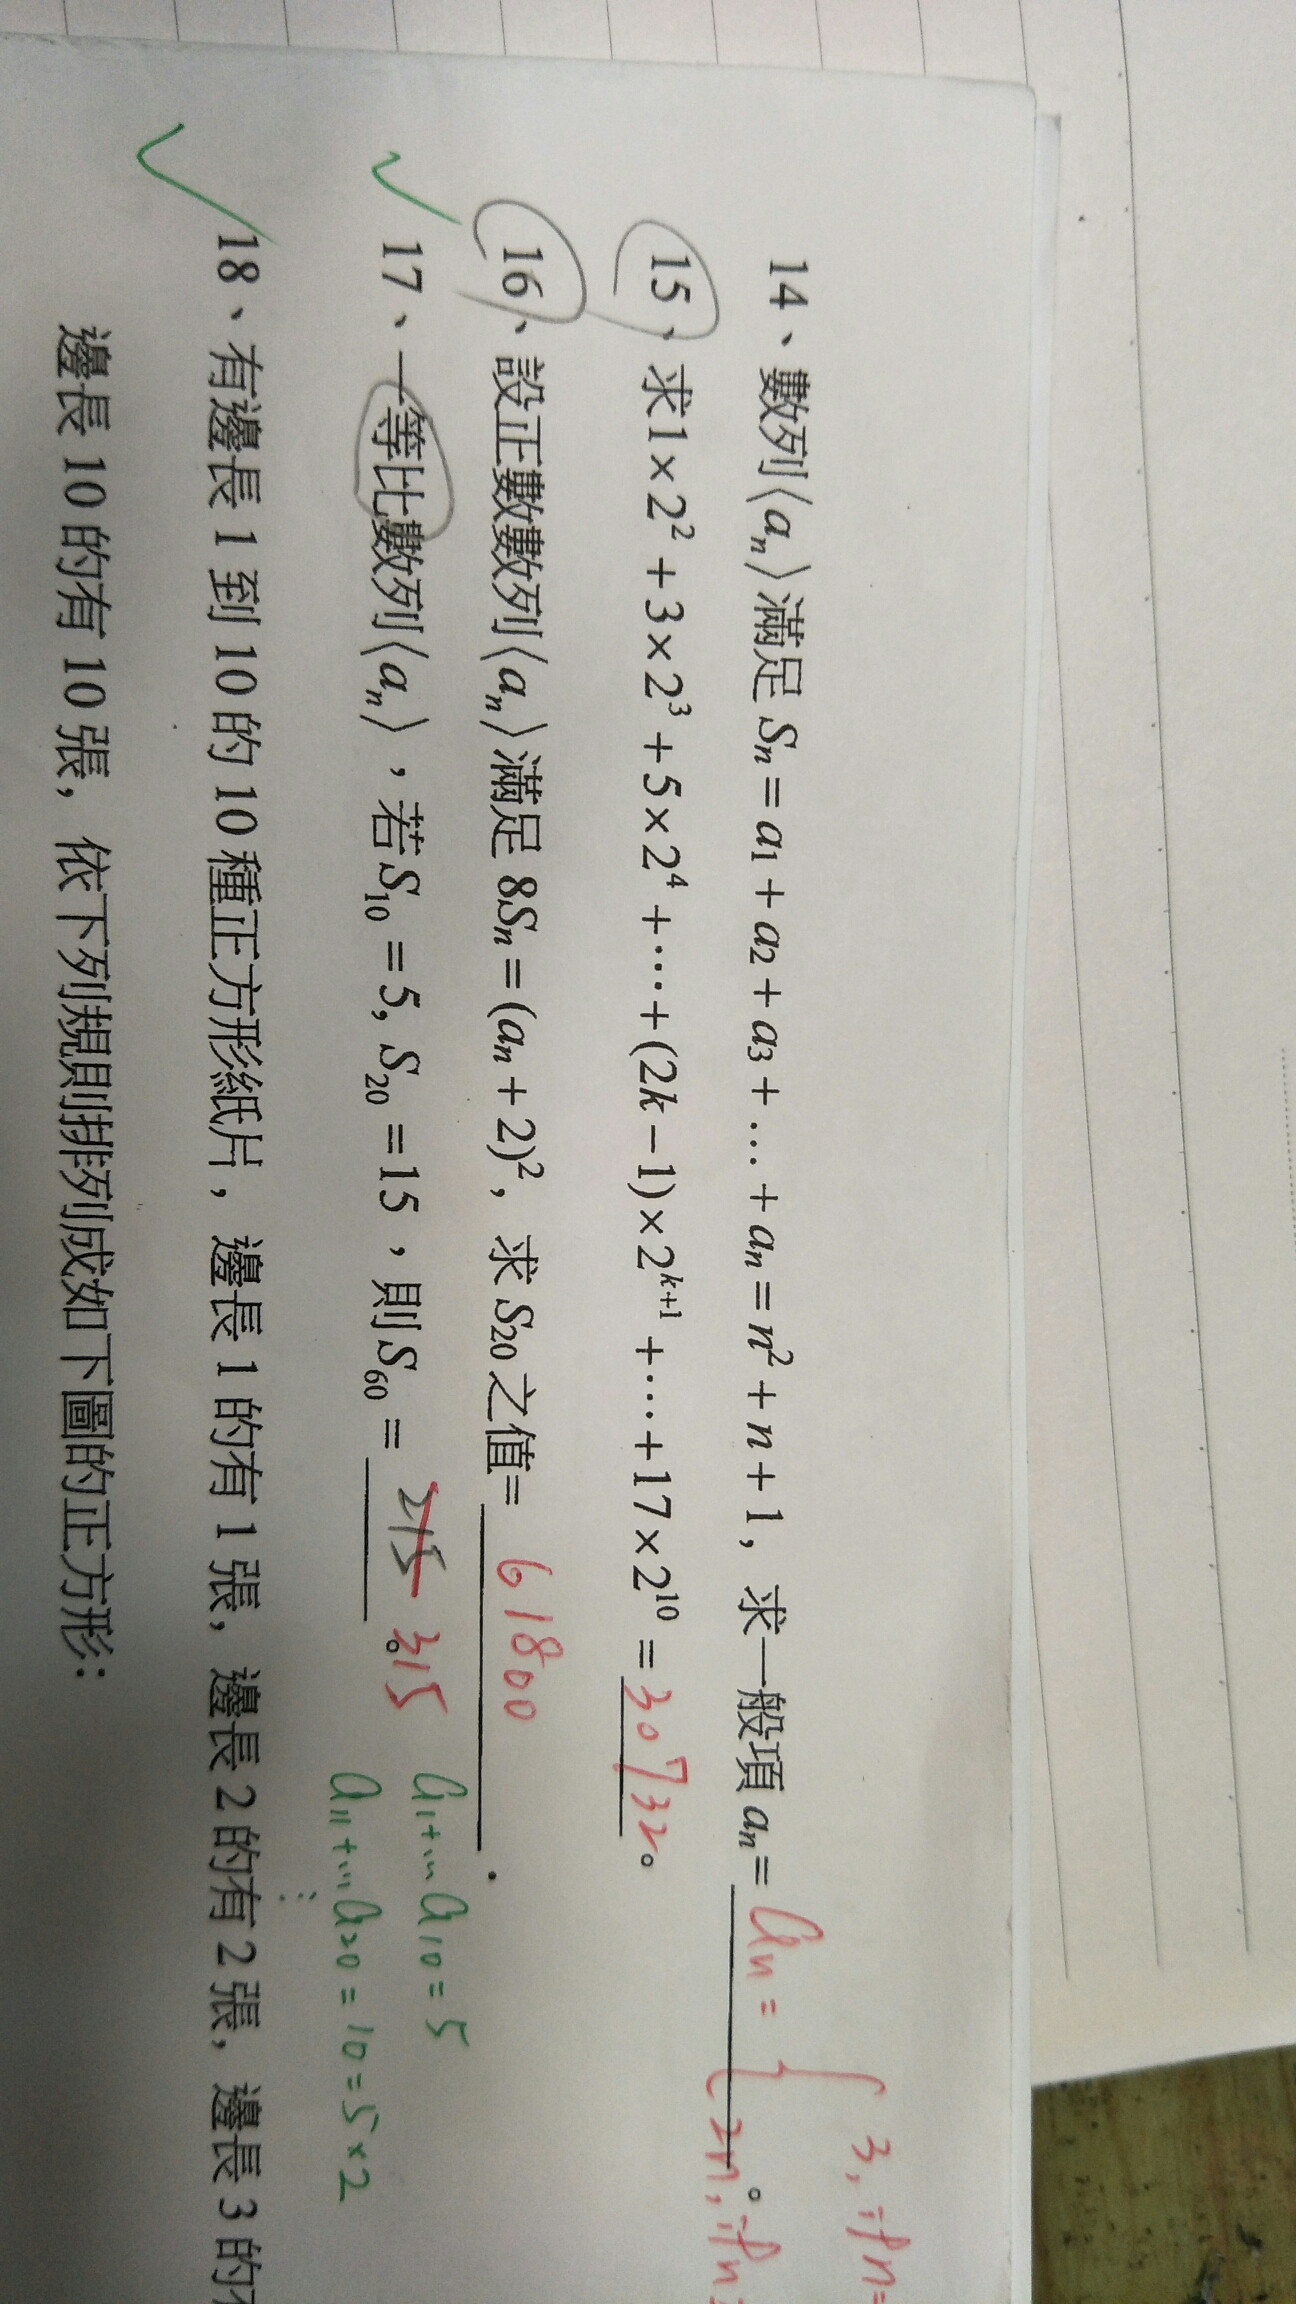 14、數列⟨aₙ⟩滿足 Sₙ = a₁ + a₂ + a₃ + … + aₙ = n² + n + 1，求一般項 aₙ = aₙ = { 3, if n=
2n, if n
15、求1×2² + 3×2³ + 5×2⁴ + … + (2k−1)×2ᵏ⁺¹ + … + 17×2¹⁰ = 30732。
16、設正數數列⟨aₙ⟩滿足 8Sₙ = (aₙ + 2)²，求 S₂₀ 之值= 61800 .
17、一等比數列⟨aₙ⟩，若 S₁₀ = 5, S₂₀ = 15，則 S₆₀ = 215 315。
a₁+…a₁₀=5
a₁₁+…a₂₀=10=5×2
18、有邊長 1 到 10 的 10 種正方形紙片，邊長 1 的有 1 張，邊長 2 的有 2 張，邊長 3 的有
邊長 10 的有 10 張，依下列規則排列成如下圖的正方形：